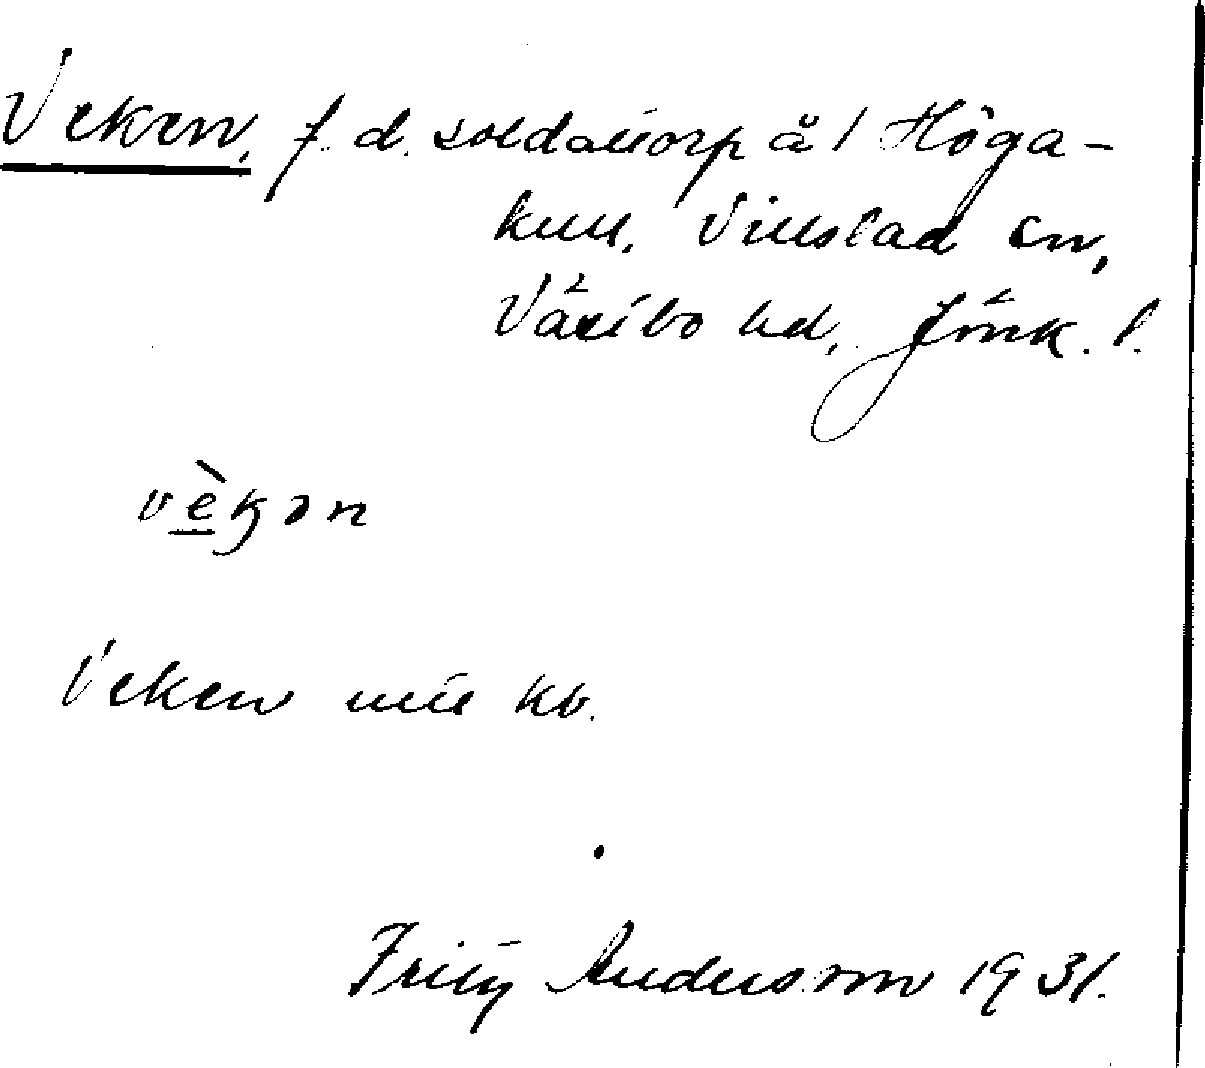 Veken, f. d. soldattorp å 1 Höga-
kull, Villstad sn,
Västbo hd, Jönk. l.
vèkən
Veken kb.
Fritz Andersson 1931.